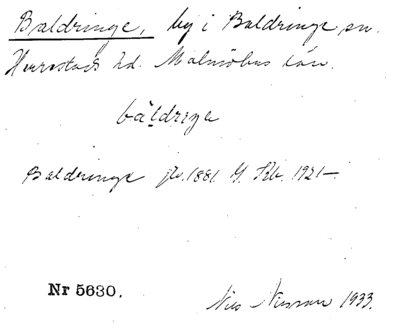 Baldringe, by i Baldringe sn.
Herrestads hd. Malmöhus län.
bäldriga
Baldringe jb. 1881. G. Skb. 1921—
Nr 5630.
Nils Nilsson 1933.